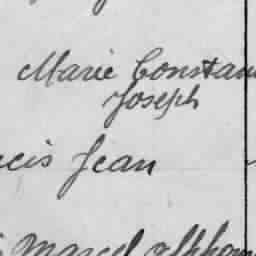 Marie Constan
Joseph
cis Jean
Marcel Alphon